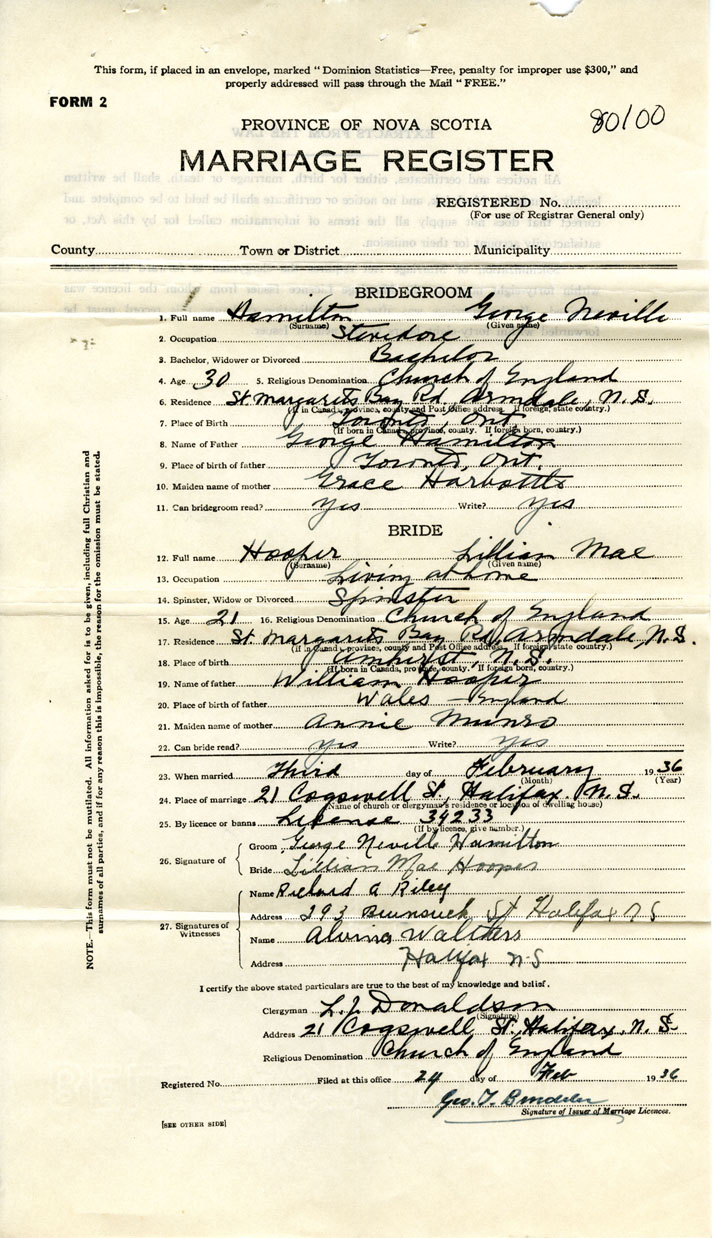 This form, if placed in an envelope, marked "Dominion Statistics—Free, penalty for improper use $300," and
properly addressed will pass through the Mail "FREE."
FORM 2
80100
PROVINCE OF NOVA SCOTIA
MARRIAGE REGISTER
REGISTERED No.
(For use of Registrar General only)
County Town or District Municipality
BRIDEGROOM
1. Full name Hamilton George Neville
(Surname) (Given name)
2. Occupation Stevedore
3. Bachelor, Widower or Divorced Bachelor
4. Age 30 5. Religious Denomination Church of England
6. Residence St. Margarets Bay Rd, Armdale, N.S.
(If in Canada, province, county and Post Office address. If foreign, state country.)
7. Place of Birth Toronto, Ont.
(If born in Canada, province, county. If foreign born, country.)
8. Name of Father George Hamilton
9. Place of birth of father Toronto, Ont.
10. Maiden name of mother Grace Harbottle
11. Can bridegroom read? yes Write? yes
BRIDE
12. Full name Hooper Lillian Mae
(Surname) (Given name)
13. Occupation Living at home
14. Spinster, Widow or Divorced Spinster
15. Age 21 16. Religious Denomination Church of England
17. Residence St Margarets Bay Rd, Armdale, N.S.
(If in Canada, province, county and Post Office address. If foreign, state country.)
18. Place of birth Amherst, N.S.
(If born in Canada, province, county. If foreign born, country.)
19. Name of father William Hooper
20. Place of birth of father Wales England
21. Maiden name of mother Annie Munro
22. Can bride read? yes Write? yes
23. When married Third day of February 1936
(Month) (Year)
24. Place of marriage 21 Cogswell St, Halifax. N.S.
(Name of church or clergyman's residence or location of dwelling house)
25. By licence or banns License 34233
(If by licence, give number.)
26. Signature of
Groom George Neville Hamilton
Bride Lillian Mae Hooper
27. Signatures of Witnesses
Name Richard A Riley
Address 293 Brunswick St Halifax N S
Name Alvina Walters
Address Halifax N-S
I certify the above stated particulars are true to the best of my knowledge and belief.
Clergyman L. J. Donaldson
(Signature)
Address 21 Cogswell St. Halifax, N.S.
Religious Denomination Church of England
Registered No. Filed at this office 24 day of Feb 1936
Geo. T.
Signature of Issuer of Marriage Licences.
[SEE OTHER SIDE]
NOTE.—This form must not be mutilated. All information asked for is to be given, including full Christian and
surnames of all parties, and if for any reason this is impossible, the reason for the omission must be stated.